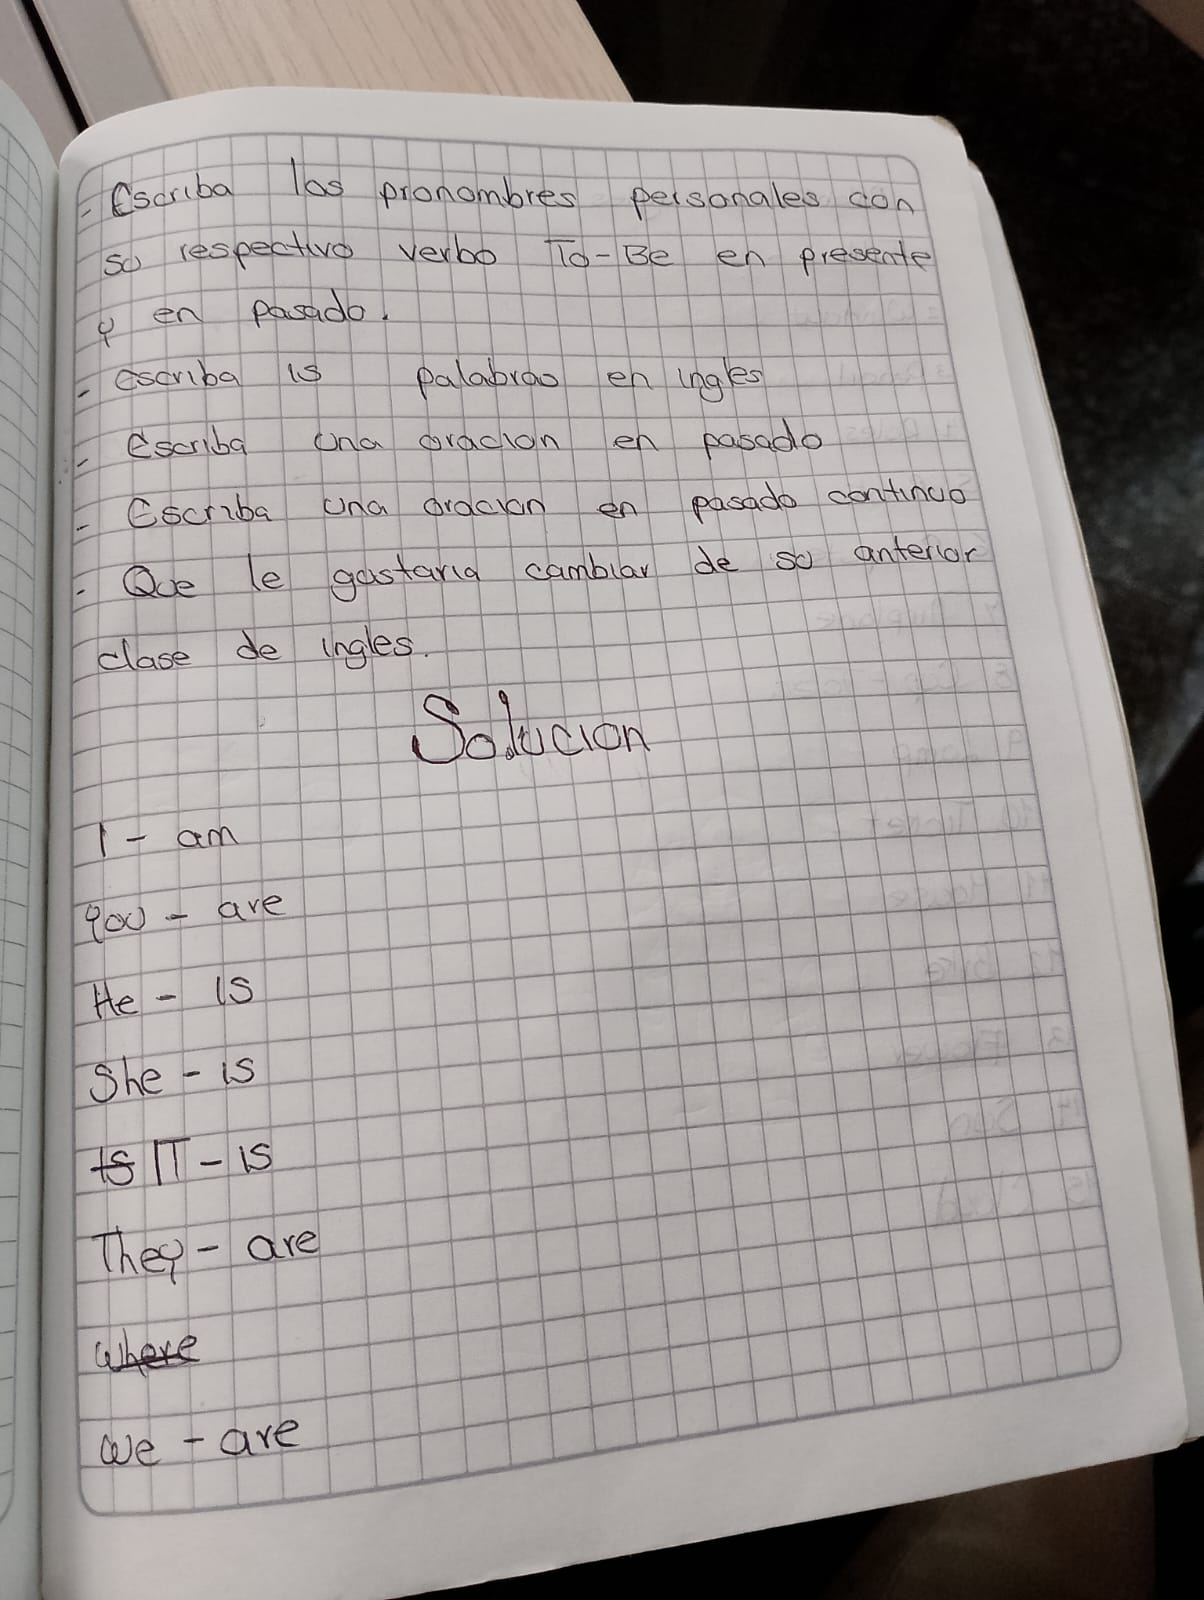 - Escriba los pronombres personales con
su respectivo verbo To-Be en presente
y en pasado.
- escriba 15 palabras en ingles
- Escriba una oracion en pasado
- Escriba una oracion en pasado continuo
- Que le gustaria cambiar de su anterior
clase de ingles.
Solucion
I - am
You - are
He - is
She - is
IT - is
They - are
where
we - are